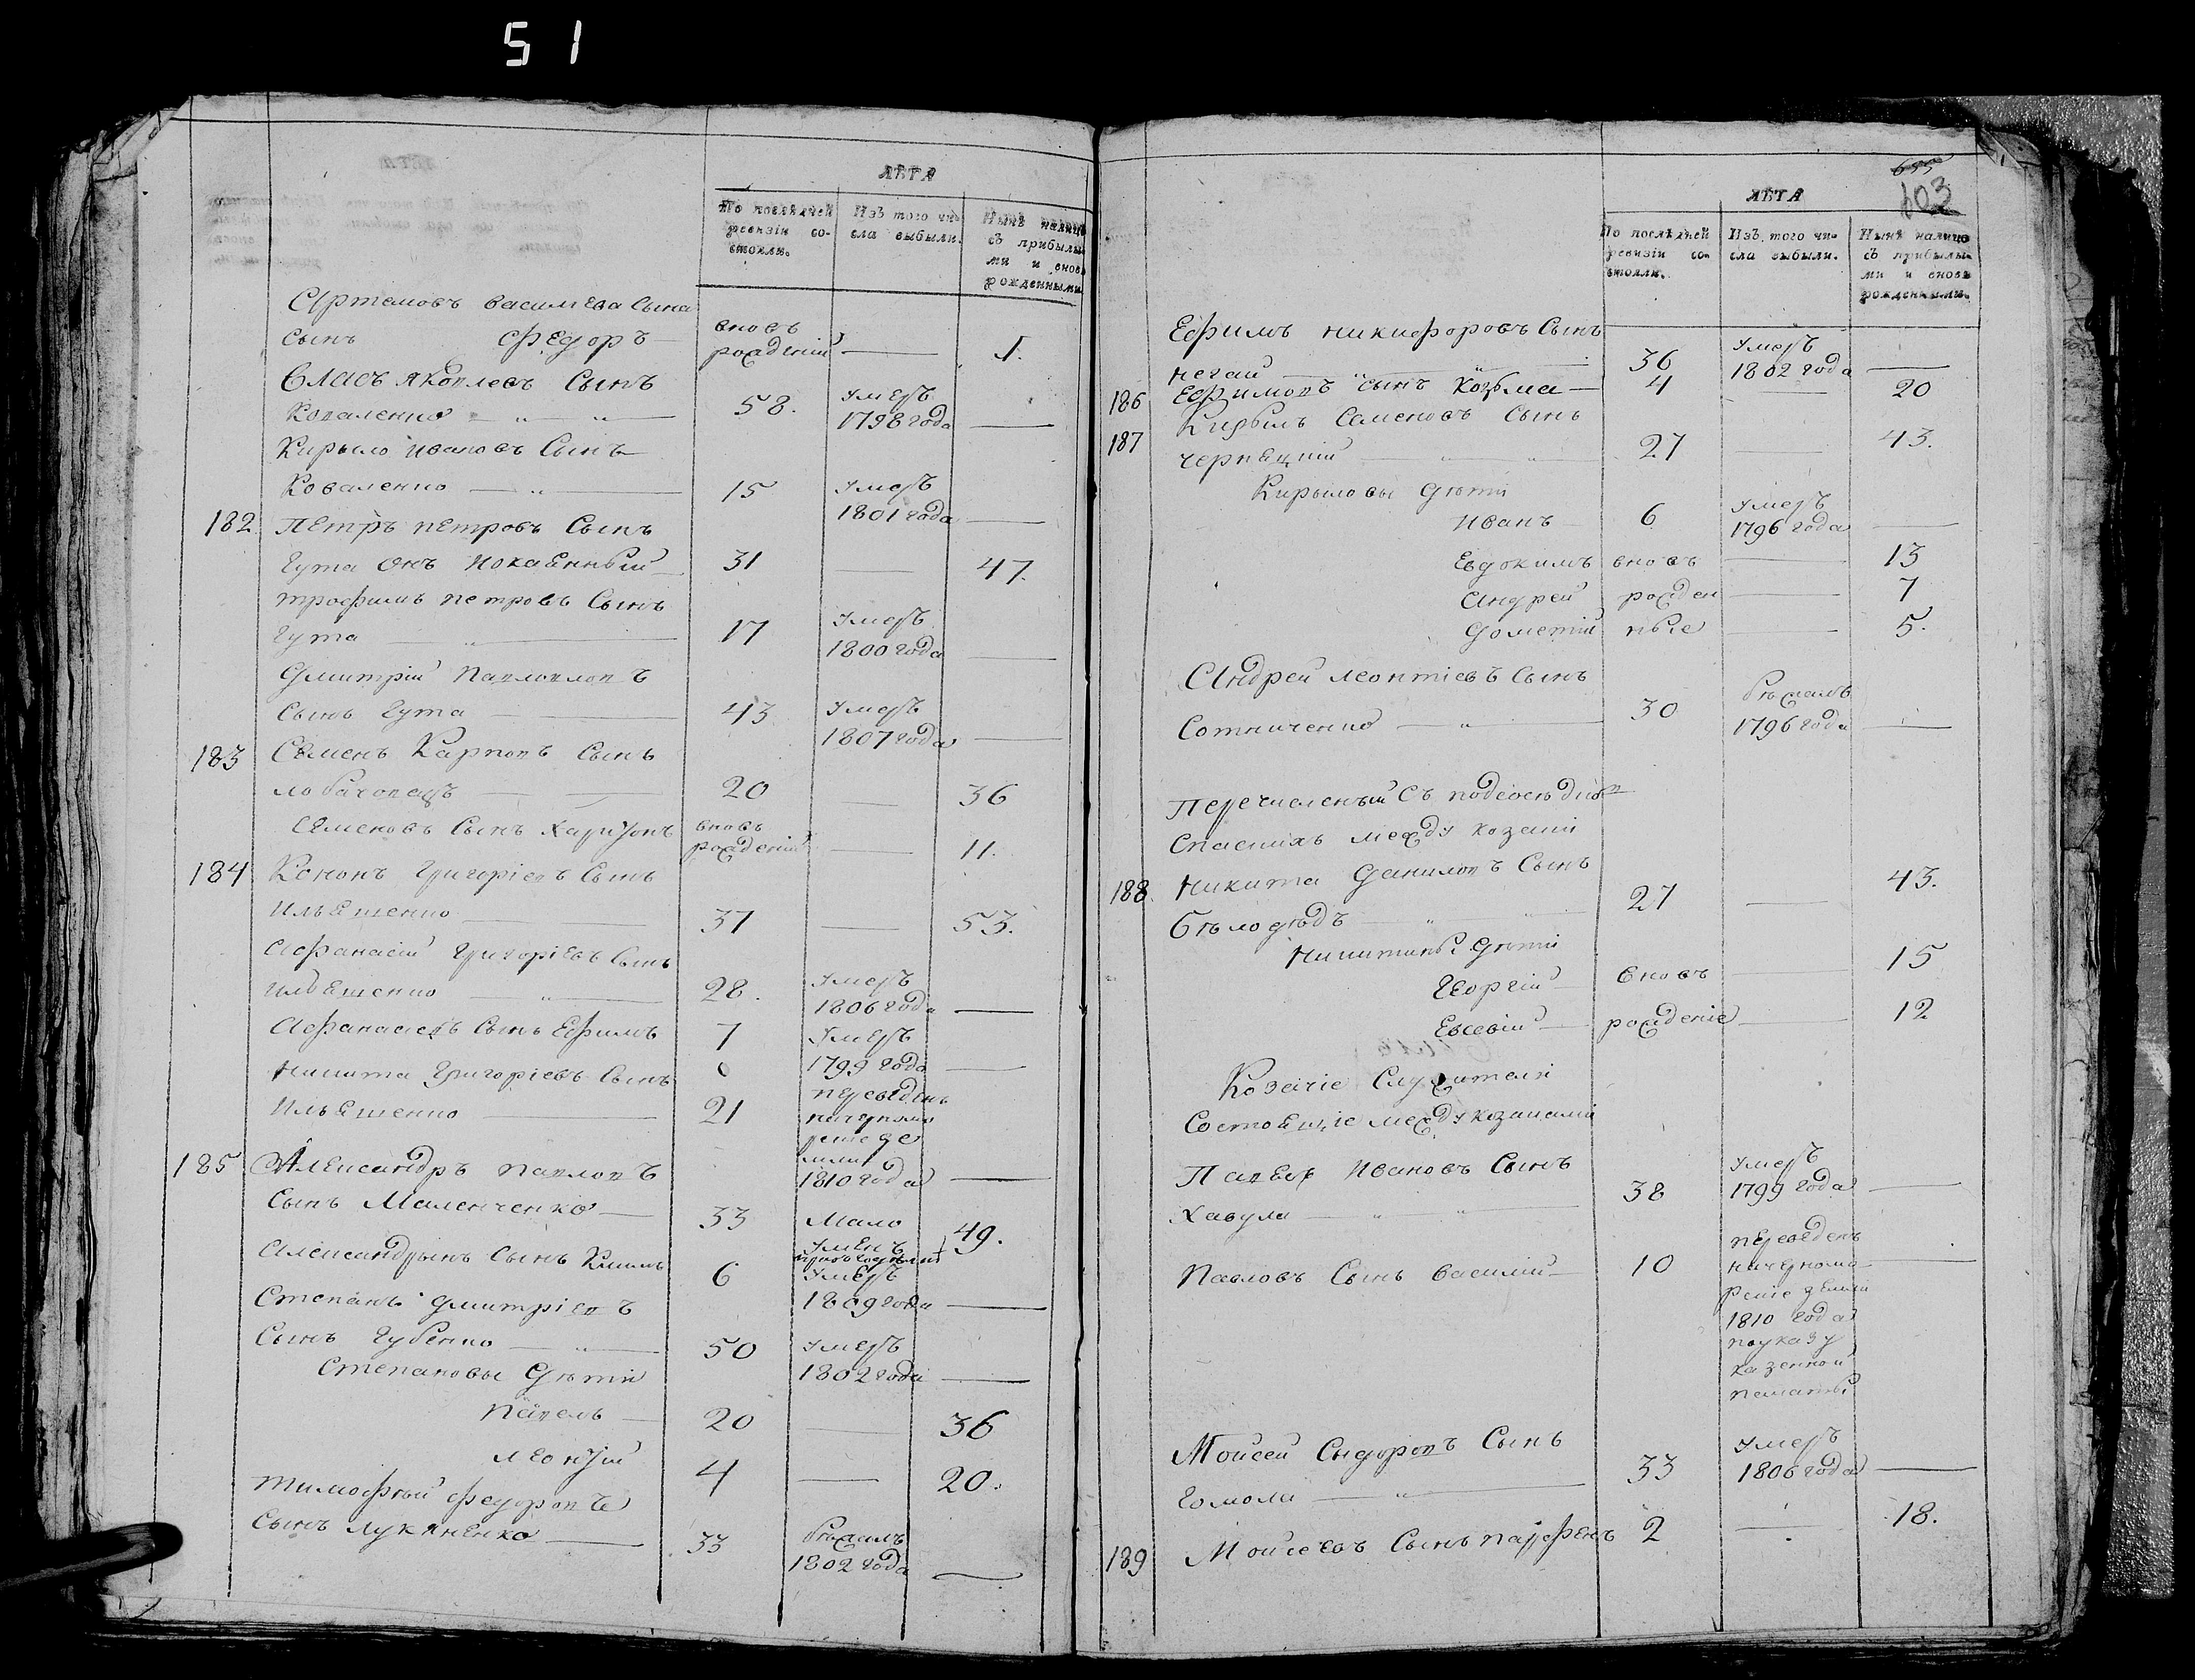 51
ЛѢТА
По послѣдней ревизіи состояли.
Изъ того числа выбыли.
Нынѣ налицо съ прибылыми и вновь рожденными
Артемовъ васильева Сына
сынъ Федоръ вновь рожденій — 1.
Власъ яковлевъ Сынъ
Коваленко 58. умеръ 1798 года —
Кирыло ивановъ Сынъ
Коваленко 15 умеръ 1801 года —
182 петръ петровъ Сынъ
Гута онъ 31 — 47.
трофимъ петровъ Сынъ
Гута 17 умеръ 1800 года —
Дмитрій павловъ
Сынъ Гута 43 умеръ 1807 года —
183 Семенъ Карповъ Сынъ
20 — 36
Семеновъ Сынъ Харитонъ вновь рожденій — 11.
184 Кононъ Григоріевъ Сынъ
Ильяшенко 37 — 53.
Афанасій Григоріевъ Сынъ
Ильяшенко 28. умеръ 1806 года —
Афанасіевъ Сынъ Ефимъ 7 умеръ 1799 года —
никита Григоріевъ Сынъ
Ильяшенко 21 переведенъ 1810 года —
185 Александръ павловъ
Сынъ Маленченко 33 Мало уменъ 49.
Александрынъ Сынъ Климъ 6 умеръ 1809 года —
Степанъ дмитріевъ
Сынъ Губенко 50 умеръ 1802 года —
Степановы дѣти
павелъ 20 — 36
леонтій 4 — 20.
тимофѣй федоровъ
Сынъ лукяненко 33 бѣжалъ 1802 года —
655
603
ЛѢТА
По послѣдней ревизіи состояли.
Изъ того числа выбыли.
Нынѣ налицо съ прибылыми и вновь рожденными.
Ефимъ никифоровъ Сынъ
нечай 36 умеръ 1802 года —
186 Ефимовъ сынъ козьма 4 — 20
187 Кирылъ Семеновъ Сынъ
чернецкій 27 — 43.
Кирыловы дѣти
иванъ 6 умеръ 1796 года —
Евдокимъ вновь — 13
Андрей рожден — 7
дометій ные — 5.
Андрей леонтіевъ Сынъ
Сотниченко 30 бѣжалъ 1796 года —
Перечисленый съ
между козаки
188. никита Даниловъ Сынъ
Бѣлодѣдъ 27 — 43.
никитины дѣти
Георгій вновь — 15
Евсевій рожденіе — 12
Козачіе Служители
Состоящіе между козаками
Павелъ ивановъ Сынъ
Хавула 38 умеръ 1799 года —
павловъ Сынъ василій 10 переведенъ
на черномо
рскіе земли
1810 года
по указу
казенной
палаты —
Мойсей Сыдоровъ Сынъ
Гомола 33 умеръ 1806 года —
189 Мойсеевъ Сынъ парфенъ 2 — 18.